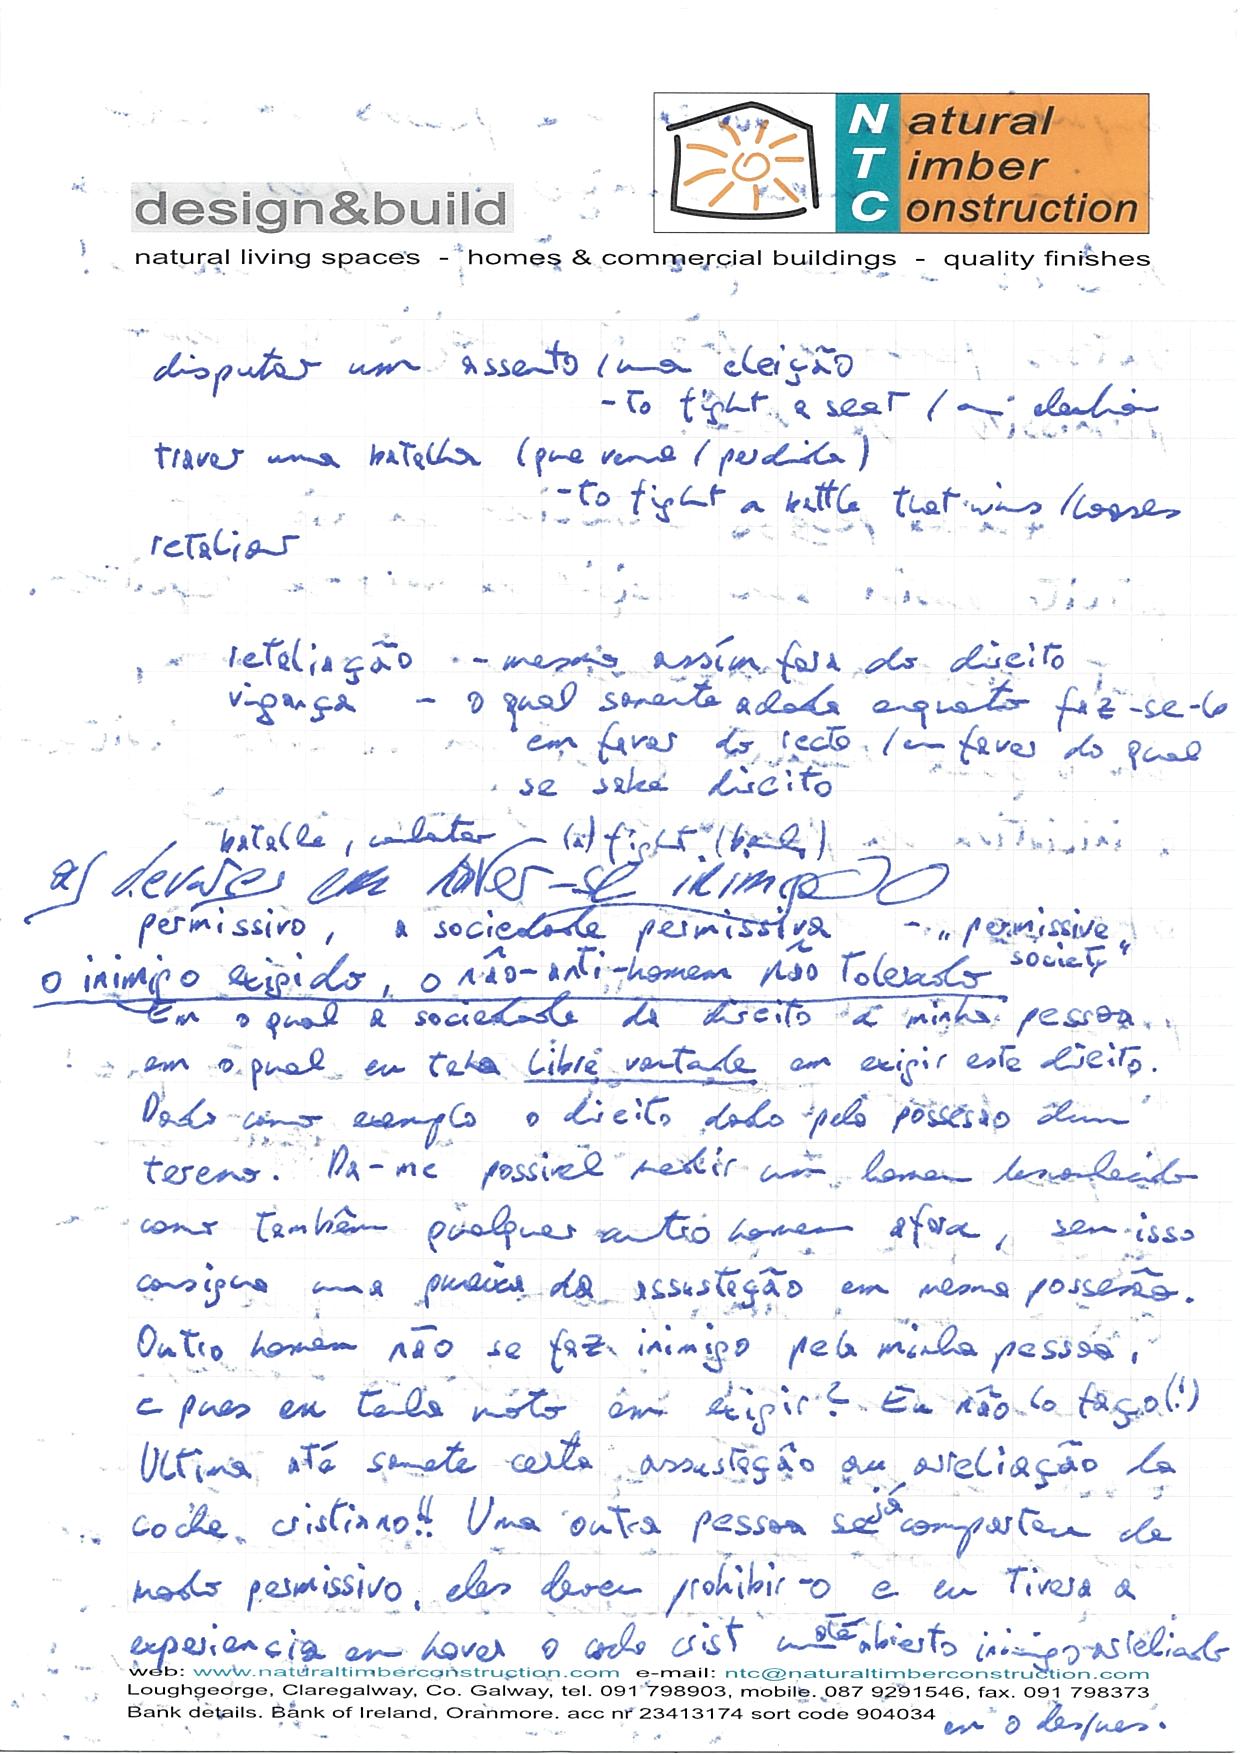 Natural
Timber
Construction
design&build
natural living spaces - homes & commercial buildings - quality finishes
disputar um assento / uma eleição
- to fight a seat / an election
traver uma batalha (que vence / perdida)
- to fight a battle that wins / looses
retaliar
retaliação - mesmo assim fora do direito
vigança - o qual somente adada enquato faz-se-lo
em faver do recto / em faver do qual
se saka direito
batalle, combater - (a) fight (
a) devares em haver-se inimigo
permissivo, a sociedade permissiva - „permissive
society"
o inimigo exigido, o não-anti-homem não tolerado
Em o qual a sociedade da direito a minha pessoa
em o qual eu teha libre vontade em exigir este direito.
Dado como exemplo o direito dado pelo possesão dum
tereno. Da-me possivel medir um homem desconhecido
como também qualquer outro homem afora, sem isso
consigua uma da assusteção em mesma possesão.
Outro homem não se faz inimigo pela minha pessoa,
e pues eu tenha moto em exigir? Eu não lo faço(!)
Ultima até somete certa assusteção ou da
coche cristiano!! Uma outra pessoa se já comparten de
modo permissivo, eles deven prohibir-o e eu tivera a
experiencia em haver o code crist um até abierto inimigo
web: www.naturaltimberconstruction.com e-mail: ntc@naturaltimberconstruction.com
Loughgeorge, Claregalway, Co. Galway, tel. 091 798903, mobile. 087 9291546, fax. 091 798373
Bank details. Bank of Ireland, Oranmore. acc nr 23413174 sort code 904034
em o despues.